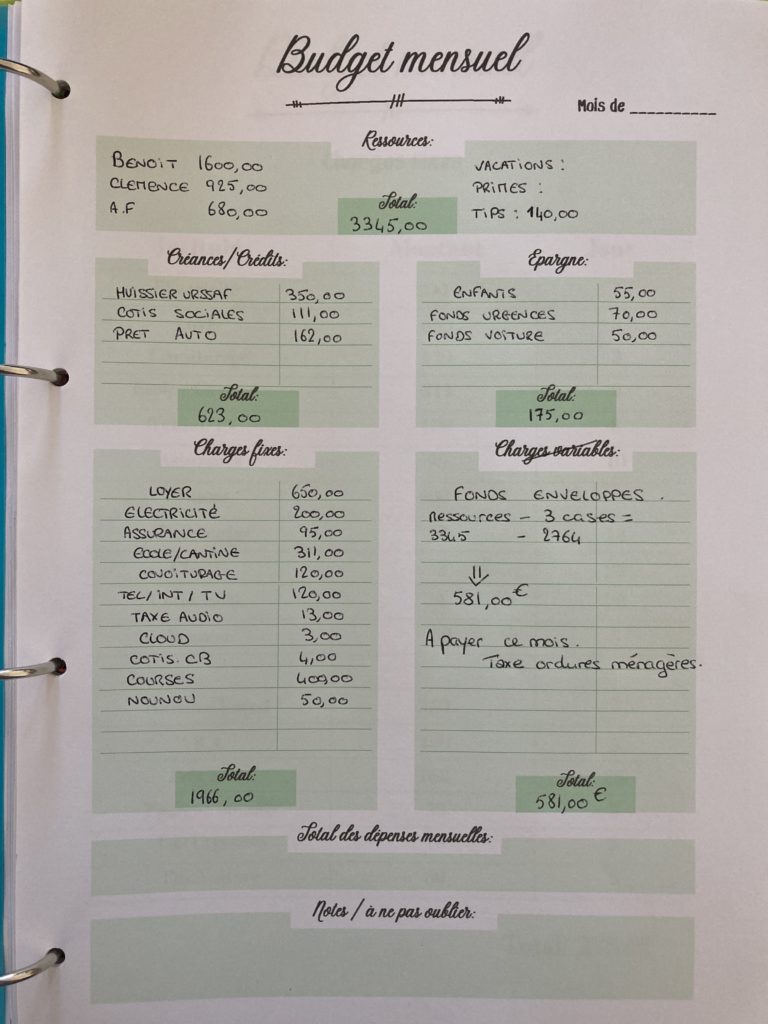 Budget mensuel
Mois de __________
Ressources:
BENOIT 1600,00
CLEMENCE 925,00
A.F 680,00
Total:
3345,00
VACATIONS :
PRIMES :
TIPS : 140,00
Créances/Crédits:
HUISSIER URSSAF 350,00
COTIS SOCIALES 111,00
PRET AUTO 162,00
Total:
623,00
Epargne:
ENFANTS 55,00
FONDS URGENCES 70,00
FONDS VOITURE 50,00
Total:
175,00
Charges fixes:
LOYER 650,00
ELECTRICITÉ 200,00
ASSURANCE 95,00
ECOLE/CANTINE 311,00
COVOITURAGE 120,00
TEL/INT/TV 120,00
TAXE AUDIO 13,00
CLOUD 3,00
COTIS. CB 4,00
COURSES 400,00
NOUNOU 50,00
Total:
1966,00
Charges variables:
FONDS ENVELOPPES.
Ressources - 3 cases =
3345 - 2764
⇓
581,00€
A payer ce mois.
Taxe ordures ménagères.
Total:
581,00€
Total des dépenses mensuelles:
Notes / à ne pas oublier: